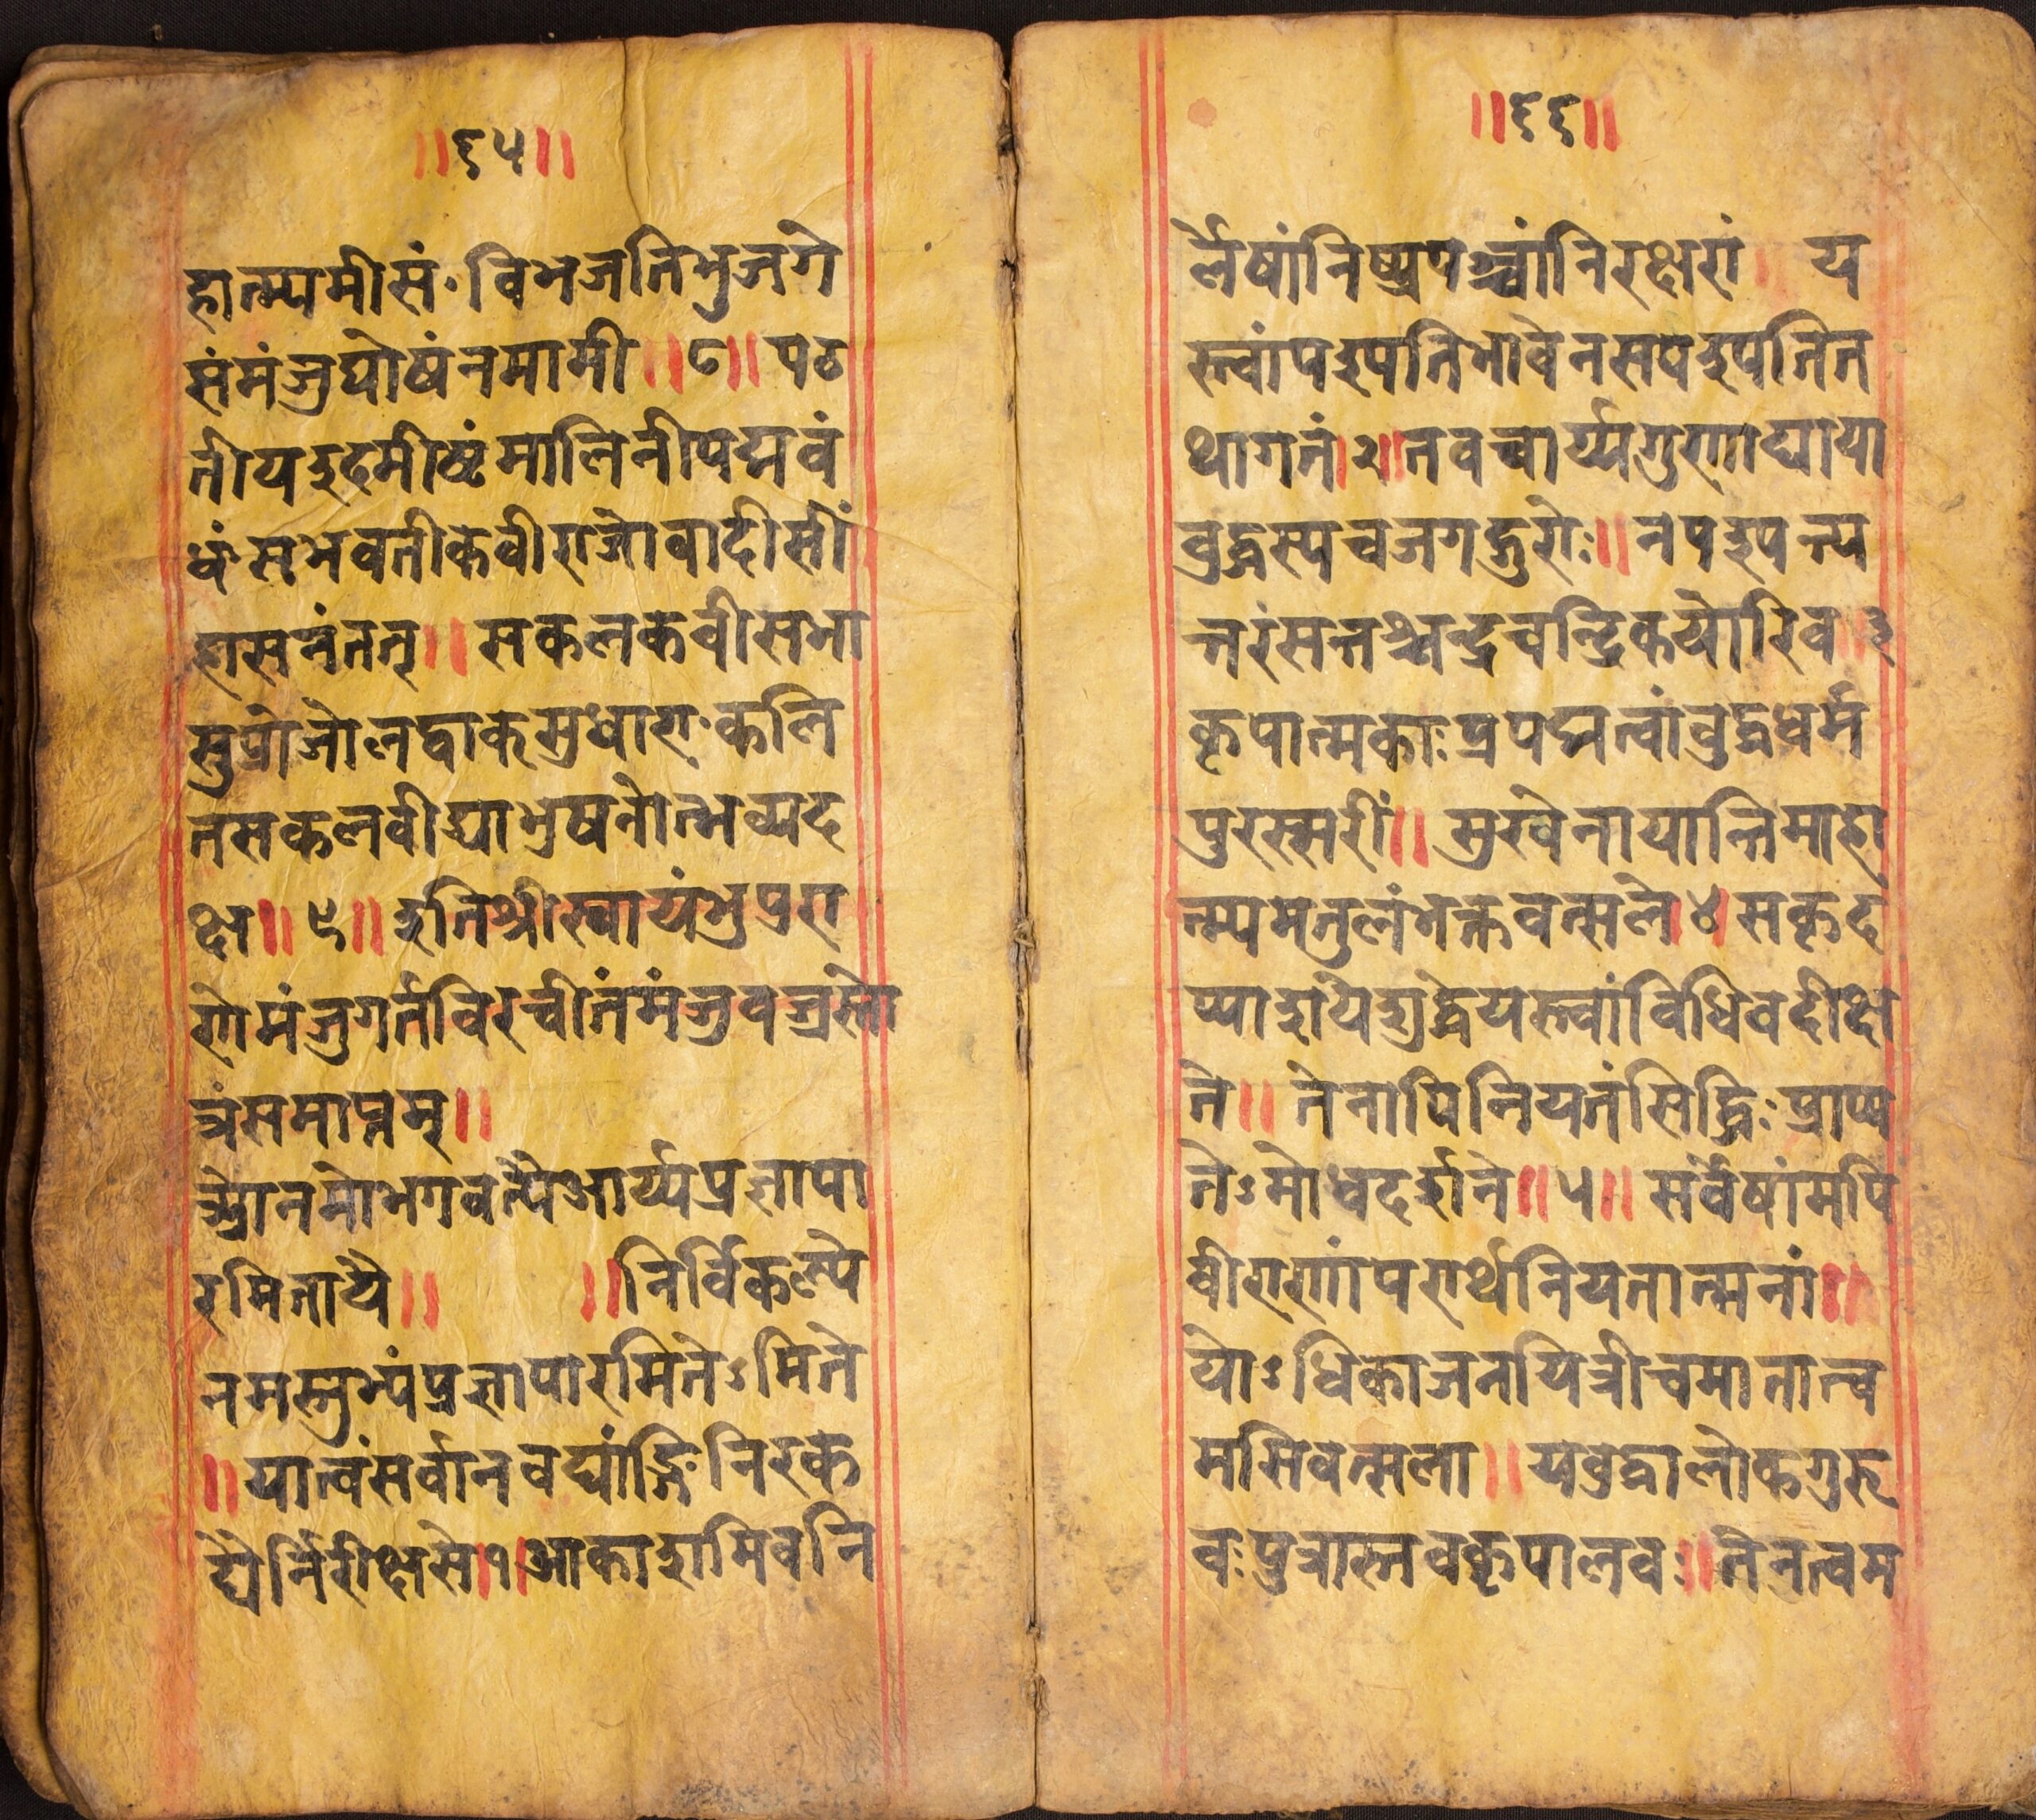 ॥६५॥
हात्म्यमीसं॰विभजतिभुजगे
संमंजुघोषंनमामी॥८॥पठ
तीयइदमीष्टंमालिनीपद्मवं
धंसभवतीकवीराजोवादीसीं
हासनंतत्॥सकलकवीसभा
सुप्रोजोलद्वाक्सुधारा॰कलि
तसकलवीद्याभुषनोत्भव्यद
क्ष॥९॥इतिश्रीस्वायंभुपुरा
णेमंजुगर्तविरचीतंमंजुवज्रस्तो
त्रंसमाप्तम्॥
नमोभगवत्यैआर्य्यप्रज्ञापा
रमितायै॥ ॥निर्विकल्पे
नमस्तुभ्यंप्रज्ञापारमितेऽमिते
॥यात्वंसर्वानवद्यांङ्गिनिरव
द्यैर्निरीक्षसे१आकाशमिवनि
॥६६॥
र्लेषांनिष्प्रपञ्चांनिरक्षरां॥य
स्त्वांपश्पतिभावेनसपश्पतित
थागतं।२॥तवचार्य्यगुणाद्याया
वुद्धस्यचजगद्गुरोः॥नपश्पन्त्य
न्तरंसन्तश्चन्द्रचन्द्रिकयोरिव॥३
कृपात्मकाःप्रपद्यत्वांवुद्धधर्म
पुरस्सरीं॥सुखेनायान्तिमाहा
त्म्यमतुलंभक्तवत्सले।४।सकृद
प्याशयेशुद्धेयस्त्वांविधिवदीक्ष
ते॥तेनापिनियतंसिद्धिःप्राप्य
तेऽमोघदर्शने॥५॥सर्वेषांमपि
वीराणांपरार्थनियतात्मनां॥
योऽधिकाजनयित्रीचमातात्व
मसिवत्सला॥यवुद्धालोकगुरु
वःपुत्रास्तवकृपालवः॥तेनत्वम